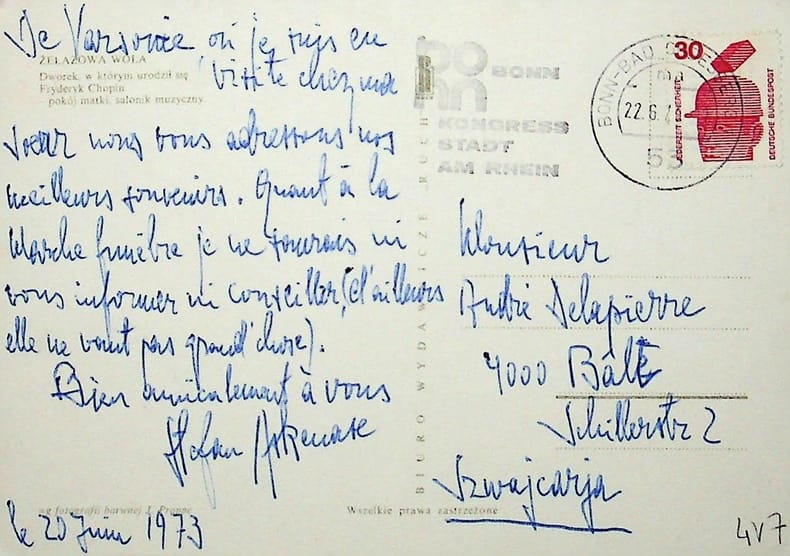 De Varsovie où je suis en
visite chez ma
ŻELAZOWA WOLA
Dworek, w którym urodził się
Fryderyk Chopin
– pokój matki, salonik muzyczny
soeur nous vous adressons nos
meilleurs souvenirs. Quant à la
Marche funèbre je ne saurais ni
vous informer ni conseiller, (d'ailleurs
elle ne vaut pas grand'chose).
Bien amicalement à vous
Stefan Askenase
wg fotografii barwnej J.
le 20 Juin 1973
BIURO WYDAWNICZE RUCH
Wszelkie prawa zastrzeżone
BONN
BONN
KONGRESS
STADT
AM RHEIN
BONN-BAD
22.6.7
mp
53
30
JEDERZEIT SICHERHEIT
DEUTSCHE BUNDESPOST
Monsieur
André Delapierre
4000 Bâle
Schillerstr 2
Szwajcarja
4V7